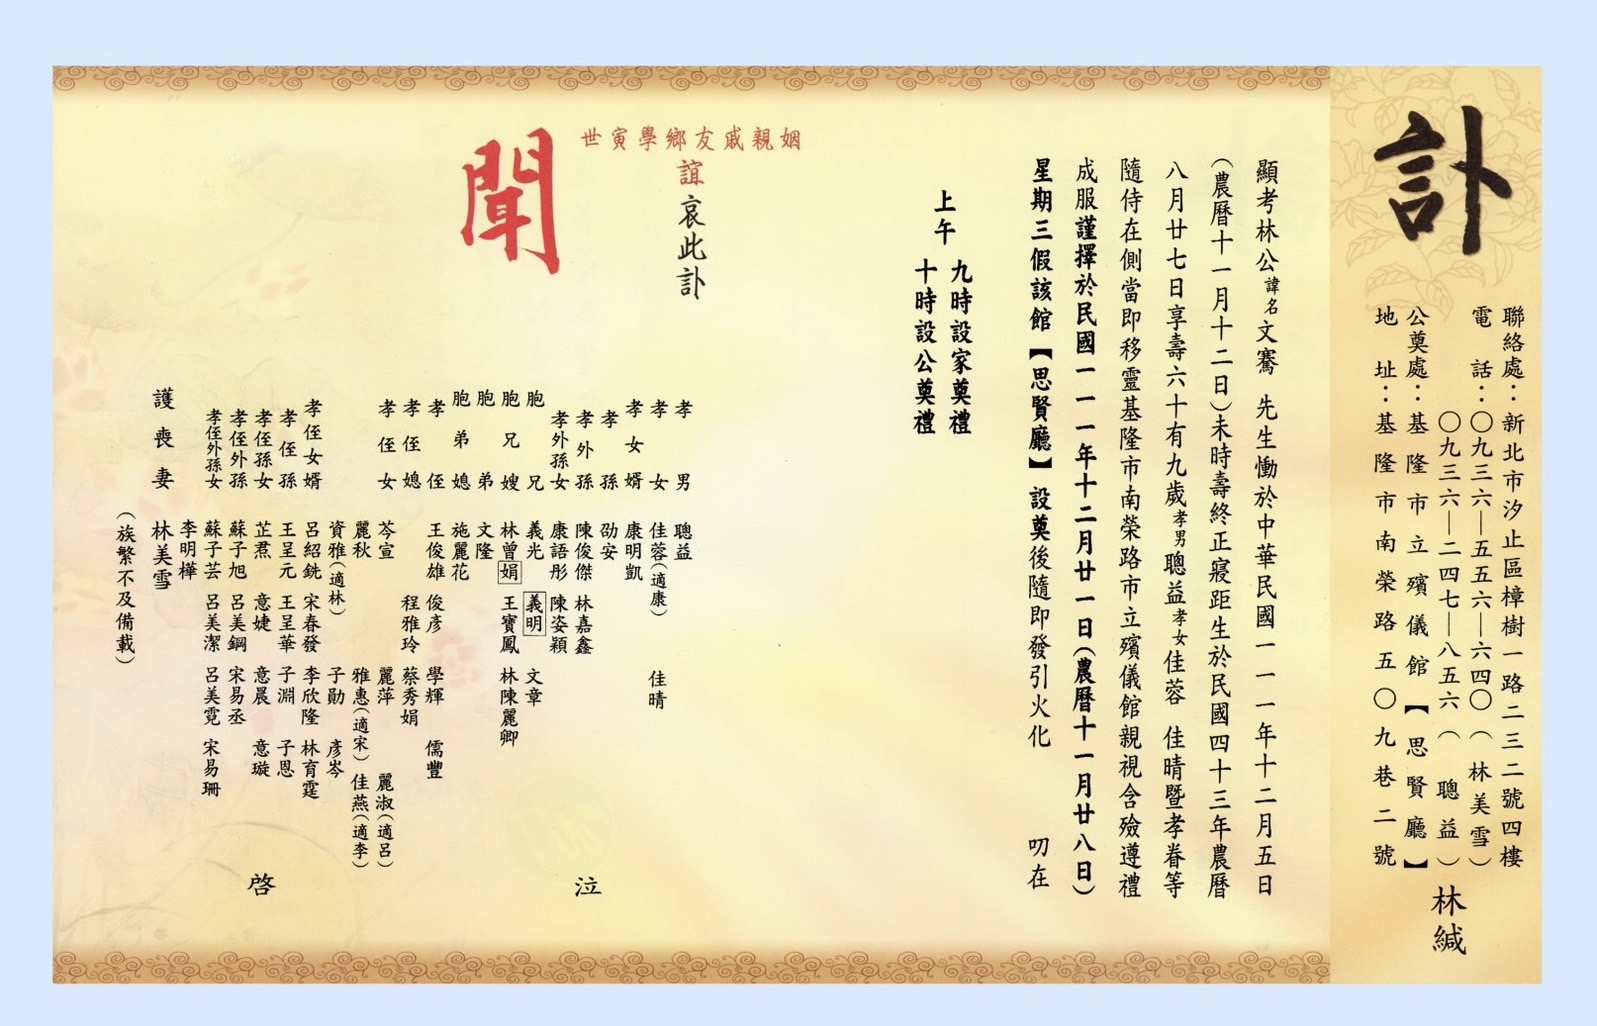 訃
聯絡處：新北市汐止區樟樹一路二三二號四樓
電　話：〇九三六—五五六—六四〇（林美雪）
〇九三六—二四七—八五六（聰益）
公奠處：基隆市立殯儀館【思賢廳】
地　址：基隆市南榮路五〇九巷二號
林緘
顯考林公諱名文騫 先生慟於中華民國一一一年十二月五日
（農曆十一月十二日）未時壽終正寢距生於民國四十三年農曆
八月廿七日享壽六十有九歲孝男聰益孝女佳蓉 佳晴暨孝眷等
隨侍在側當即移靈基隆市南榮路市立殯儀館親視含殮遵禮
成服謹擇於民國一一一年十二月廿一日（農曆十一月廿八日）
星期三假該館【思賢廳】設奠後隨即發引火化 叨在
上午 九時設家奠禮
十時設公奠禮
姻親戚友鄉學寅世
誼哀此訃
聞
孝男 聰益
孝女 佳蓉（適康） 佳晴
孝女婿 康明凱
孝孫 劭安
孝外孫 陳俊傑 林嘉鑫
孝外孫女 康語彤 陳姿穎
胞兄 義光 義明 文章
胞兄嫂 林曾娟 王寶鳳 林陳麗卿
胞弟 文隆
胞弟媳 施麗花
孝侄 王俊雄 俊彥 學輝 儒豐
孝侄媳 程雅玲 蔡秀娟
孝侄女 芩宣 麗萍 麗淑（適呂）
麗秋 雅惠（適宋） 佳燕（適李）
資雅（適林） 子勛 彥岑
孝侄女婿 呂紹銑 宋春發 李欣隆 林育霆
孝侄孫 王呈元 王呈華 子淵 子恩
孝侄孫女 芷焄 意婕 意晨 意璇
孝侄外孫 蘇子旭 呂美鋼 宋易丞
孝侄外孫女 蘇子芸 呂美潔 呂美霓 宋易珊
李明樺
護喪妻 林美雪
（族繁不及備載）
泣
啓